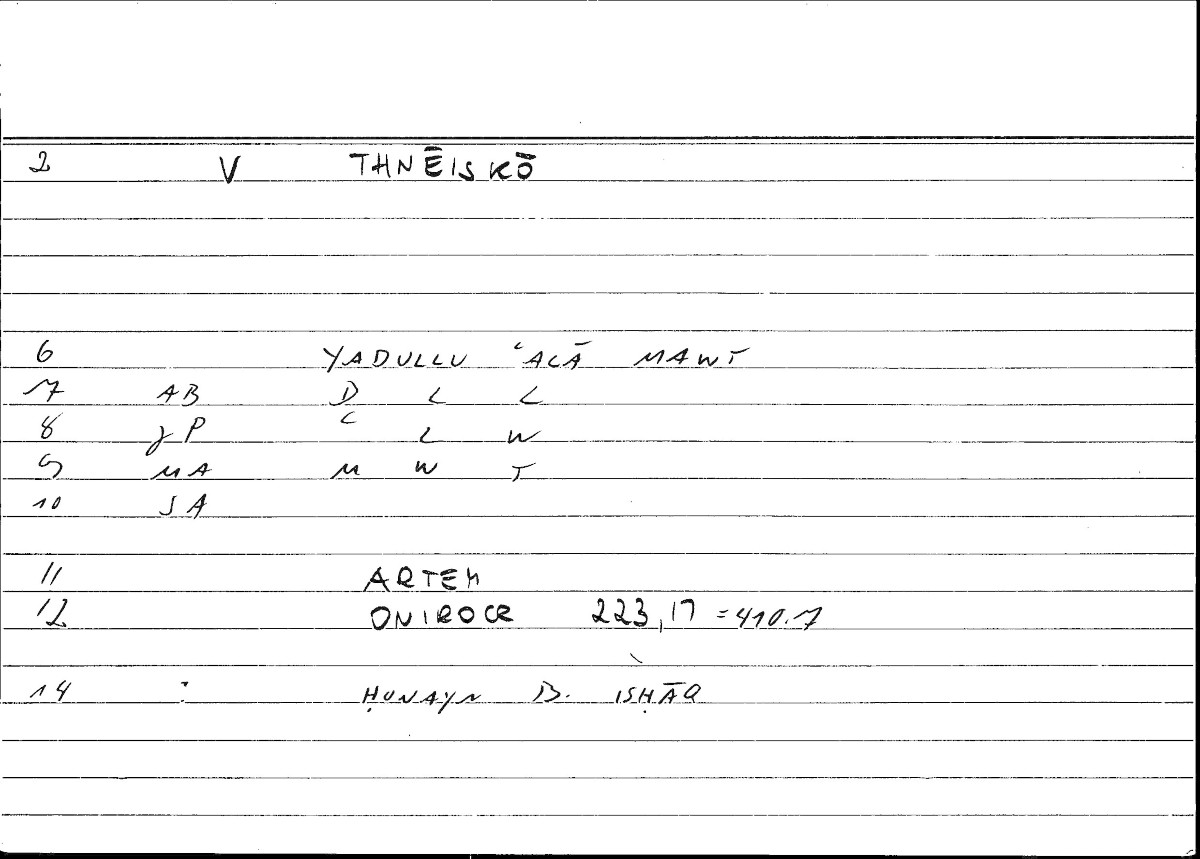 2 V THNĒISKŌ
6 YADULLU ʿALĀ MAWT
7 AB D L L
8 JP ʿ L W
9 MA M W T
10 SA
11 ARTEM
12 ONIROCR 223,17 =410.7
14 : ḤUNAYN B. ISḤĀQ